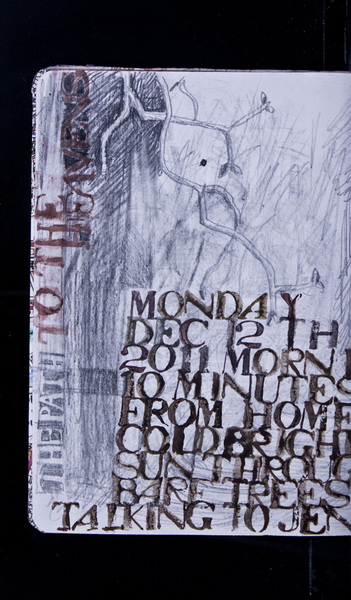 THE PATH TO THE HEAVENS
MONDAY
DEC 12TH
2011 MORN
10 MINUTES
FROM HOME
COLD BRIGHT
SUN THROUG
BARE TREES
TALKING TO JEN